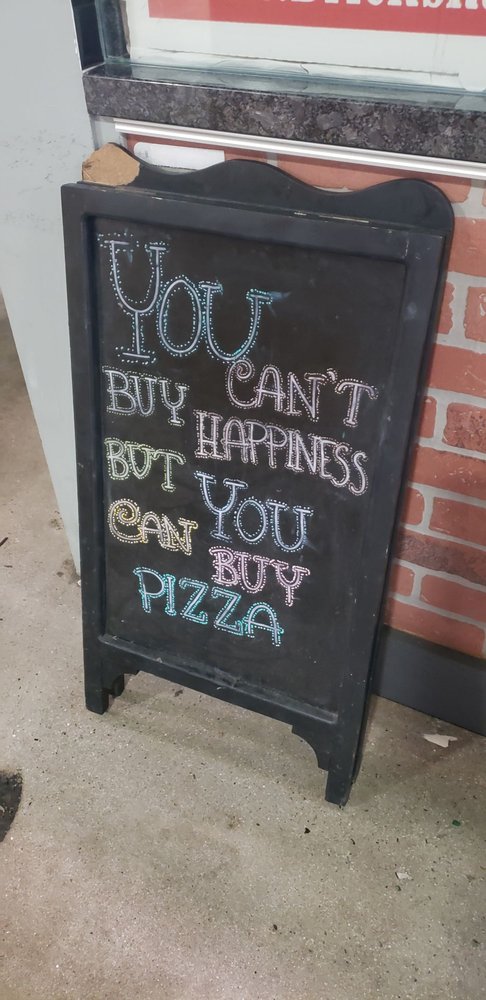 YOU
CAN'T
BUY
HAPPINESS
BUT
YOU
CAN
BUY
PIZZA